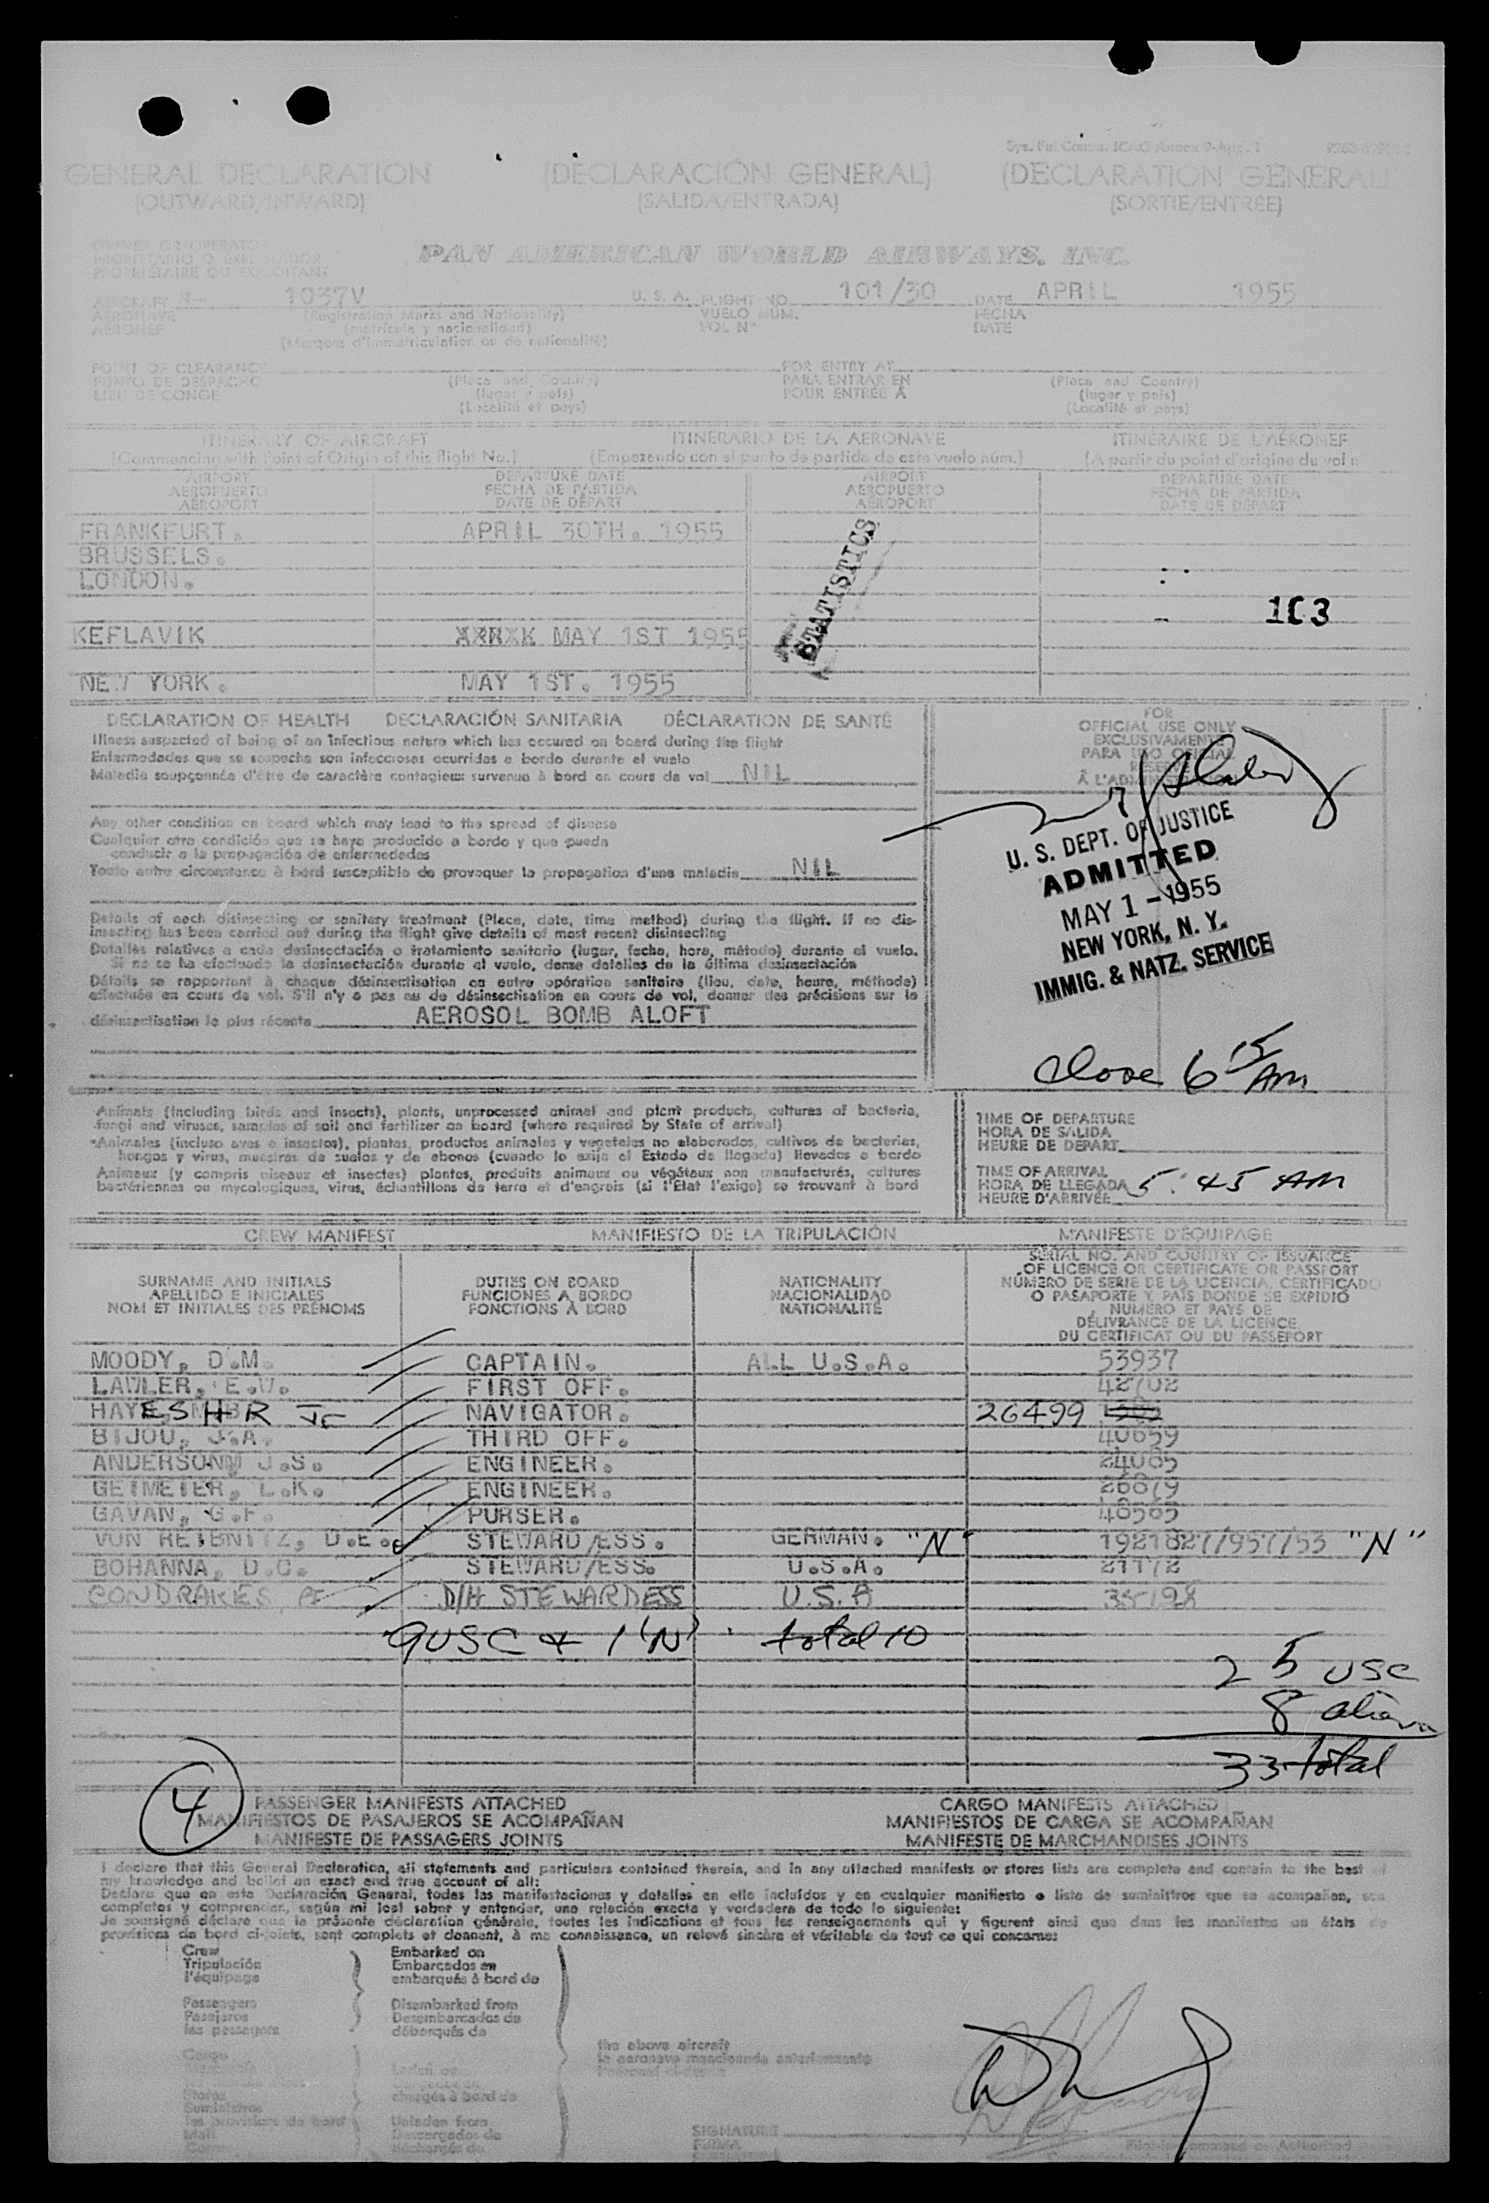 GENERAL DECLARATION (DECLARACIÓN GENERAL) (DECLARATION GENERAL)
(OUTWARD/INWARD) (SALIDA/ENTRADA) (SORTIE/ENTRÉE)
OWNER OR OPERATOR
PAN AMERICAN WORLD AIRWAYS, INC.
AIRCRAFT N- 1037V U. S. A. FLIGHT NO. 101/30 DATE APRIL 1955
AERONAVE (Registration Marks and Nationality) VUELO NÚM. FECHA
AERONEF (matrícula y nacionalidad) VOL N° DATE
(Marques d'immatriculation ou de nationalité)
POINT OF CLEARANCE FOR ENTRY AT
PUNTO DE DESPACHO (Place and Country) PARA ENTRAR EN (Place and Country)
LIEU DE CONGE (lugar y país) POUR ENTRÉE À (lugar y país)
(Localité et pays) (Localité et pays)
ITINERARY OF AIRCRAFT ITINERARIO DE LA AERONAVE ITINÉRAIRE DE L'AÉRONEF
(Commencing with Point of Origin of this flight No.) (Empezando con el punto de partida de este vuelo núm.) (A partir du point d'origine du vol n
AIRPORT DEPARTURE DATE AIRPORT DEPARTURE DATE
AEROPUERTO FECHA DE PARTIDA AEROPUERTO FECHA DE PARTIDA
AÉROPORT DATE DE DÉPART AÉROPORT DATE DE DÉPART
FRANKFURT. APRIL 30TH. 1955
BRUSSELS.
LONDON.
STATISTICS
KEFLAVIK MAY 1ST 1955
NEW YORK. MAY 1ST. 1955
DECLARATION OF HEALTH DECLARACIÓN SANITARIA DÉCLARATION DE SANTÉ
Illness suspected of being of an infectious nature which has occured on board during the flight
Enfermedades que se sospecha son infecciosas ocurridas a bordo durante el vuelo
Maladie soupçonnée d'être de caractère contagieux survenue à bord en cours de vol NIL
Any other condition on board which may lead to the spread of disease
Cualquier otra condición que se haya producido a bordo y que pueda
conducir a la propagación de enfermedades
Toute autre circonstance à bord susceptible de provoquer la propagation d'une maladie NIL
Details of each disinsecting or sanitary treatment (Place, date, time method) during the flight. If no dis-
insecting has been carried out during the flight give details of most recent disinsecting
Detalles relativos a cada desinsectación o tratamiento sanitario (lugar, fecha, hora, método) durante el vuelo.
Si no se ha efectuado la desinsectación durante el vuelo, dense detalles de la última desinsectación
Détails se rapportant à chaque désinsectisation ou autre opération sanitaire (lieu, date, heure, méthode)
effectuée en cours de vol. S'il n'y a pas eu de désinsectisation en cours de vol, donner des précisions sur la
désinsectisation la plus récente AEROSOL BOMB ALOFT
FOR
OFFICIAL USE ONLY
EXCLUSIVAMENTE
PARA USO OFICIAL
U. S. DEPT. OF JUSTICE
ADMITTED
MAY 1 - 1955
NEW YORK, N. Y.
IMMIG. & NATZ. SERVICE
6 15 AM
Animals (including birds and insects), plants, unprocessed animal and plant products, cultures of bacteria,
fungi and viruses, samples of soil and fertilizer on board (where required by State of arrival)
Animales (incluso aves e insectos), plantas, productos animales y vegetales no elaborados, cultivos de bacterias,
hongos y virus, muestras de suelos y de abonos (cuando lo exija el Estado de llegada) llevados a bordo
Animaux (y compris oiseaux et insectes) plantes, produits animaux ou végétaux non manufacturés, cultures
bactériennes ou mycologiques, virus, échantillons de terre et d'engrais (si l'Etat l'exige) se trouvant à bord
TIME OF DEPARTURE
HORA DE SALIDA
HEURE DE DEPART
TIME OF ARRIVAL
HORA DE LLEGADA 5:45 AM
HEURE D'ARRIVÉE
CREW MANIFEST MANIFIESTO DE LA TRIPULACIÓN MANIFESTE D'ÉQUIPAGE
SURNAME AND INITIALS DUTIES ON BOARD NATIONALITY SERIAL NO. AND COUNTRY OF ISSUANCE
APELLIDO E INICIALES FUNCIONES A BORDO NACIONALIDAD OF LICENCE OR CERTIFICATE OR PASSPORT
NOM ET INITIALES DES PRÉNOMS FONCTIONS À BORD NATIONALITÉ NÚMERO DE SERIE DE LA LICENCIA, CERTIFICADO
O PASAPORTE Y PAÍS DONDE SE EXPIDIÓ
NUMÉRO ET PAYS DE
DÉLIVRANCE DE LA LICENCE
DU CERTIFICAT OU DU PASSEPORT
MOODY, D.M. CAPTAIN. ALL U.S.A. 53937
LAWLER, E.U. FIRST OFF. 42702
HAYES H R Jr NAVIGATOR. 26499
BIJOU, J.A. THIRD OFF. 40659
ANDERSON J.S. ENGINEER. 24065
GETMEIER, L.K. ENGINEER. 26879
GAVAN, G.F. PURSER.
VON REIBNITZ, D.E. STEWARD/ESS. GERMAN. "N" 1921827/957/53 "N"
BOHANNA, D.C. STEWARD/ESS. U.S.A. 21172
CONDRAKES, D/H STEWARDESS U.S.A 35198
9USC + 1 "N" total 10
25 USC
8 aliens
33 total
4
PASSENGER MANIFESTS ATTACHED CARGO MANIFESTS ATTACHED
MANIFIESTOS DE PASAJEROS SE ACOMPAÑAN MANIFIESTOS DE CARGA SE ACOMPAÑAN
MANIFESTE DE PASSAGERS JOINTS MANIFESTE DE MARCHANDISES JOINTS
I declare that this General Declaration, all statements and particulars contained therein, and in any attached manifests or stores lists are complete and contain to the best of
my knowledge and belief an exact and true account of all:
Declaro que en esta Declaración General, todas las manifestaciones y detalles en ella incluídos y en cualquier manifiesto o lista de suministros que se acompañan, son
completos y comprenden, según mi leal saber y entender, una relación exacta y verdadera de todo lo siguiente:
Je soussigné déclare que la présente déclaration générale, toutes les indications et tous les renseignements qui y figurent ainsi que dans les manifestes ou états de
provisions de bord ci-joints, sont complets et donnent, à ma connaissance, un relevé sincère et véritable de tout ce qui concerne:
Crew Embarked on
Tripulación Embarcados en
l'équipage embarqués à bord de
Passengers Disembarked from
Pasajeros Desembarcados de
les passagers débarqués de
the above aircraft
la aeronave mencionada anteriormente
Cargo
Stores chargés à bord de
Suministros
les provisions de bord Unladen from
Mail Descargados de
déchargés de
SIGNATURE
FIRMA